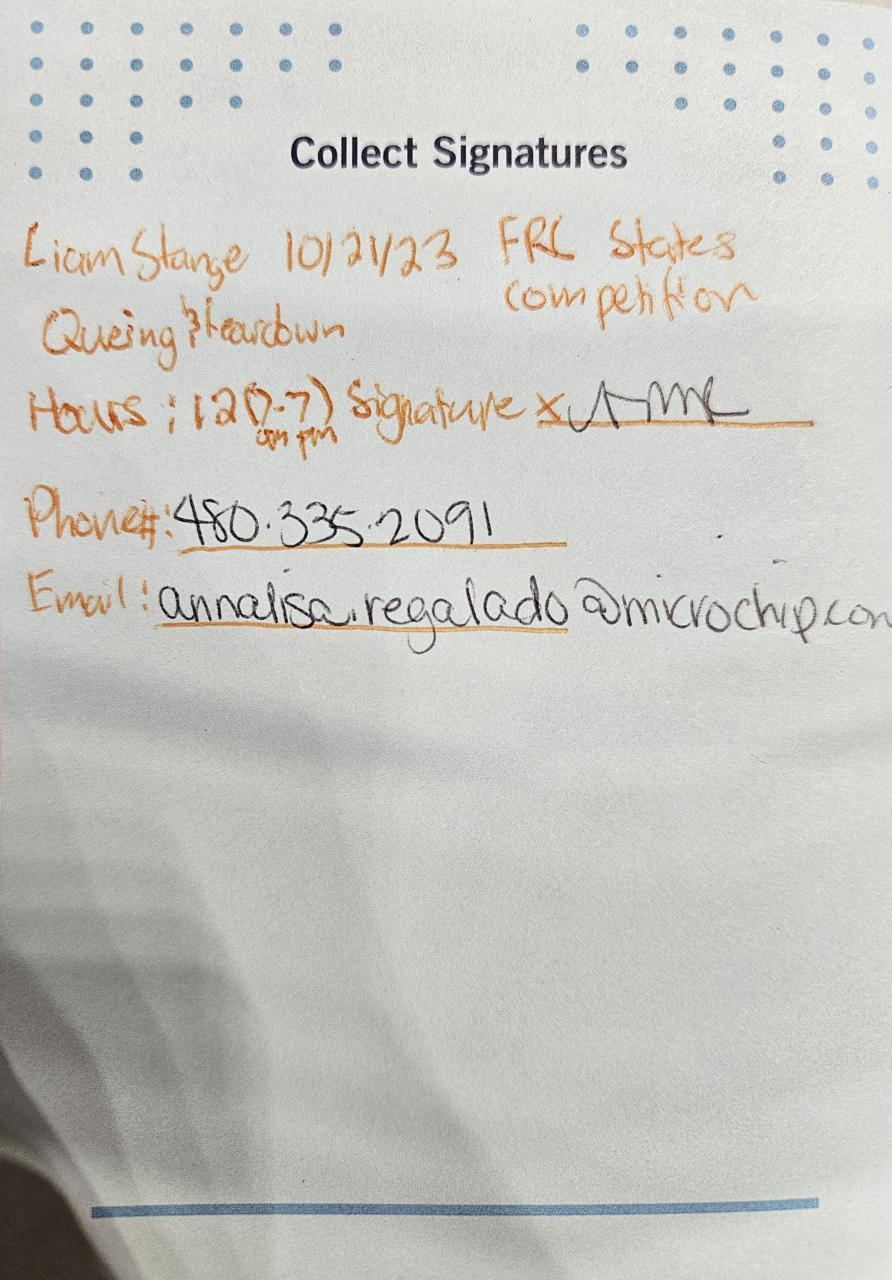 Collect Signatures
Liam Stange 10/21/23 FRC States
competition
Queing & teardown
Hours: 12 (7-7) Signature x
am pm
Phone#: 480.335.2091
Email: annalisa.regalado@microchip.com